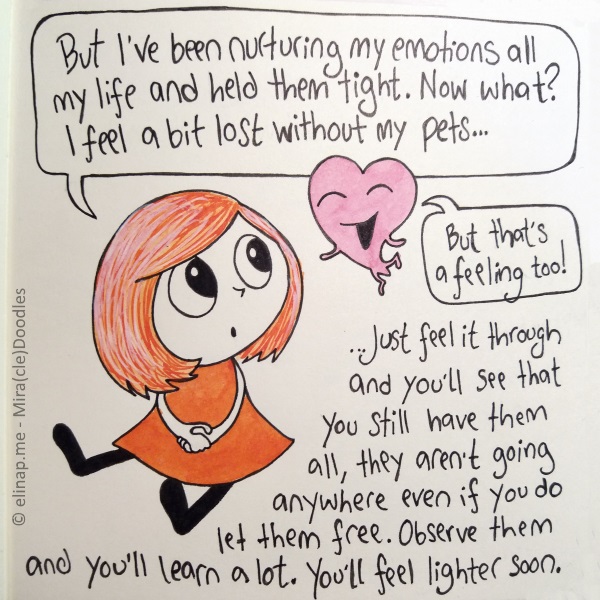 But I've been nurturing my emotions all
my life and held them tight. Now what?
I feel a bit lost without my pets...
But that's
a feeling too!
...Just feel it through
and you'll see that
you still have them
all, they aren't going
anywhere even if you do
let them free. Observe them
and you'll learn a lot. You'll feel lighter soon.
© elinap.me - Mira(cle)Doodles